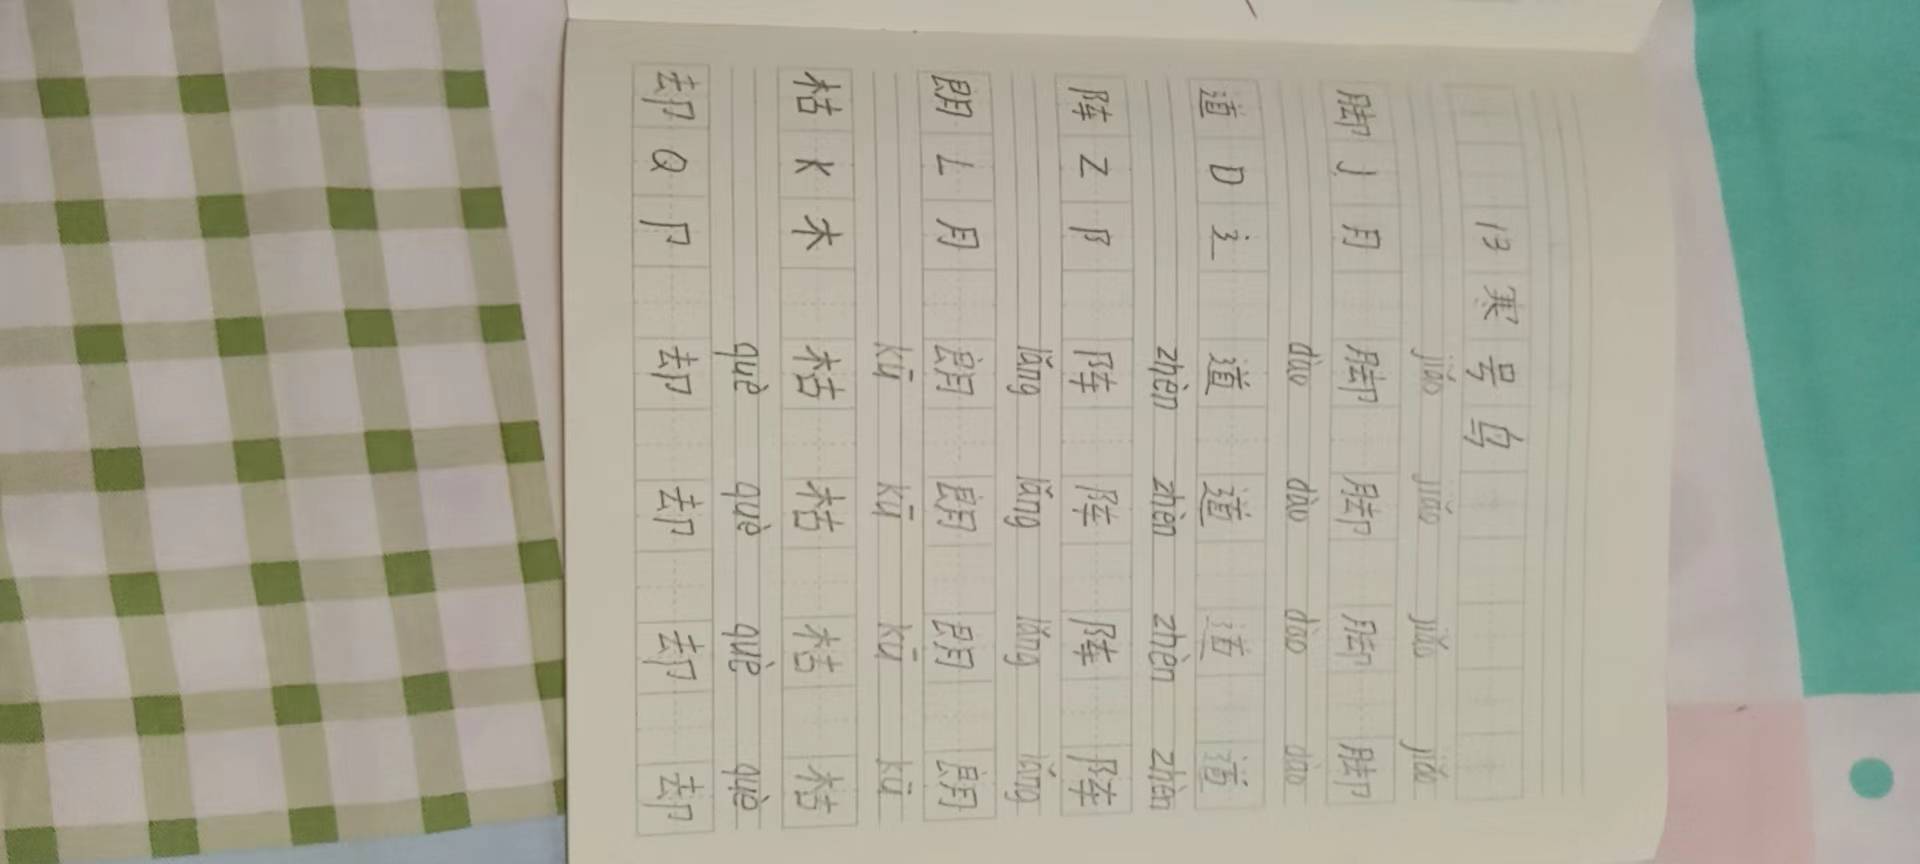 13 寒号鸟
jiǎo jiǎo jiǎo jiǎo
脚 J 月 脚 脚 脚 脚
dào dào dào dào
道 D 辶 道 道 道 道
zhèn zhèn zhèn zhèn
阵 Z 阝 阵 阵 阵 阵
lǎng lǎng lǎng lǎng
朗 L 月 朗 朗 朗 朗
kū kū kū kū
枯 K 木 枯 枯 枯 枯
què què què què
却 Q 卩 却 却 却 却